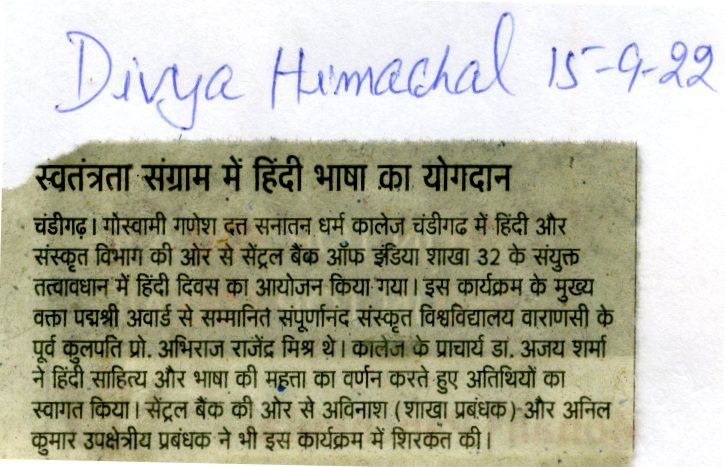 Divya Himachal 15-9-22
स्वतंत्रता संग्राम में हिंदी भाषा का योगदान
चंडीगढ़। गोस्वामी गणेश दत्त सनातन धर्म कालेज चंडीगढ में हिंदी और
संस्कृत विभाग की ओर से सेंट्रल बैंक ऑफ इंडिया शाखा 32 के संयुक्त
तत्वावधान में हिंदी दिवस का आयोजन किया गया। इस कार्यक्रम के मुख्य
वक्ता पद्मश्री अवार्ड से सम्मानित संपूर्णानंद संस्कृत विश्वविद्यालय वाराणसी के
पूर्व कुलपति प्रो. अभिराज राजेंद्र मिश्र थे। कालेज के प्राचार्य डा. अजय शर्मा
ने हिंदी साहित्य और भाषा की महता का वर्णन करते हुए अतिथियों का
स्वागत किया। सेंट्रल बैंक की ओर से अविनाश (शाखा प्रबंधक) और अनिल
कुमार उपक्षेत्रीय प्रबंधक ने भी इस कार्यक्रम में शिरकत की।